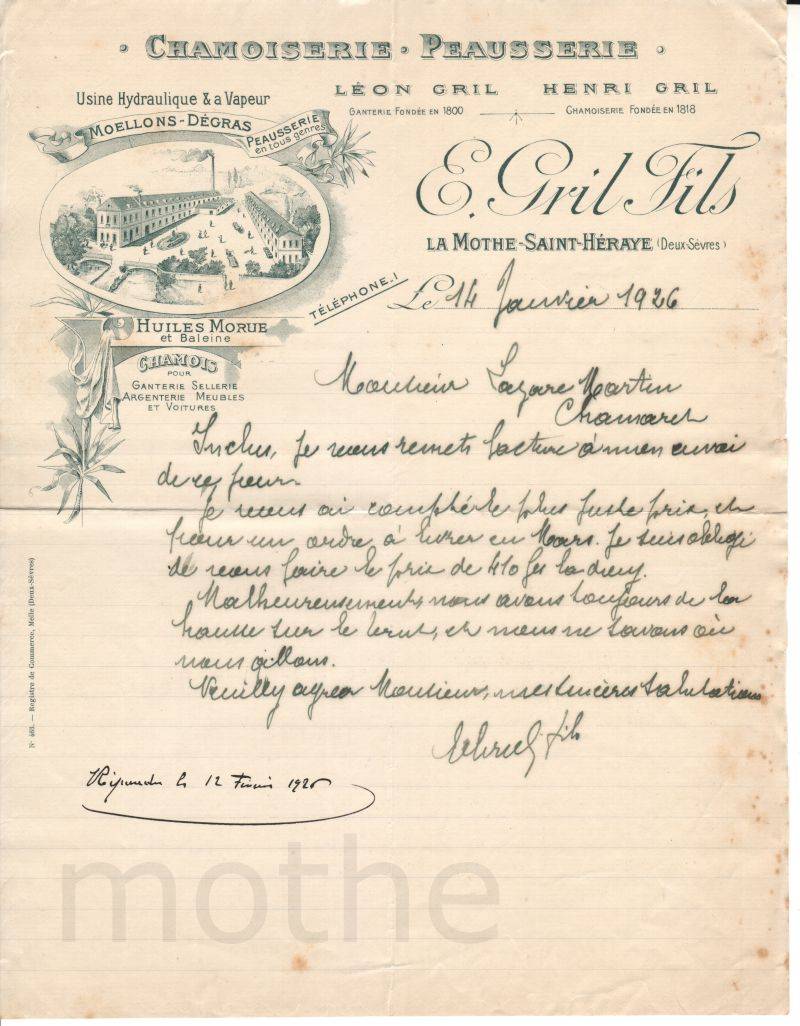 CHAMOISERIE · PEAUSSERIE
LÉON GRIL HENRI GRIL
GANTERIE FONDÉE EN 1800 CHAMOISERIE FONDÉE EN 1818
Usine Hydraulique & a Vapeur
MOELLONS-DÉGRAS
PEAUSSERIE
en tous genres
E. Gril Fils
LA MOTHE-SAINT-HÉRAYE (Deux-Sèvres)
TÉLÉPHONE.1
Le 14 Janvier 1926
HUILES MORUE
et Baleine
CHAMOIS
POUR
GANTERIE SELLERIE
ARGENTERIE MEUBLES
ET VOITURES
Monsieur Lazare Martin
Chamaret
Inclus, je vous remets facture à mon envoi
de ce jour.
Je vous ai compté le plus juste prix, et
pour un ordre à livrer en Mars. Je suis obligé
de vous faire le prix de 410 fcs la douz.
Malheureusement, nous avons toujours de la
hausse sur le brut, et nous ne savons où
nous allons.
Veuillez agréer Monsieur, mes sincères salutations
fils
Répondu le 12 Février 1926
N° 463. — Registre de Commerce, Melle (Deux-Sèvres)
mothe